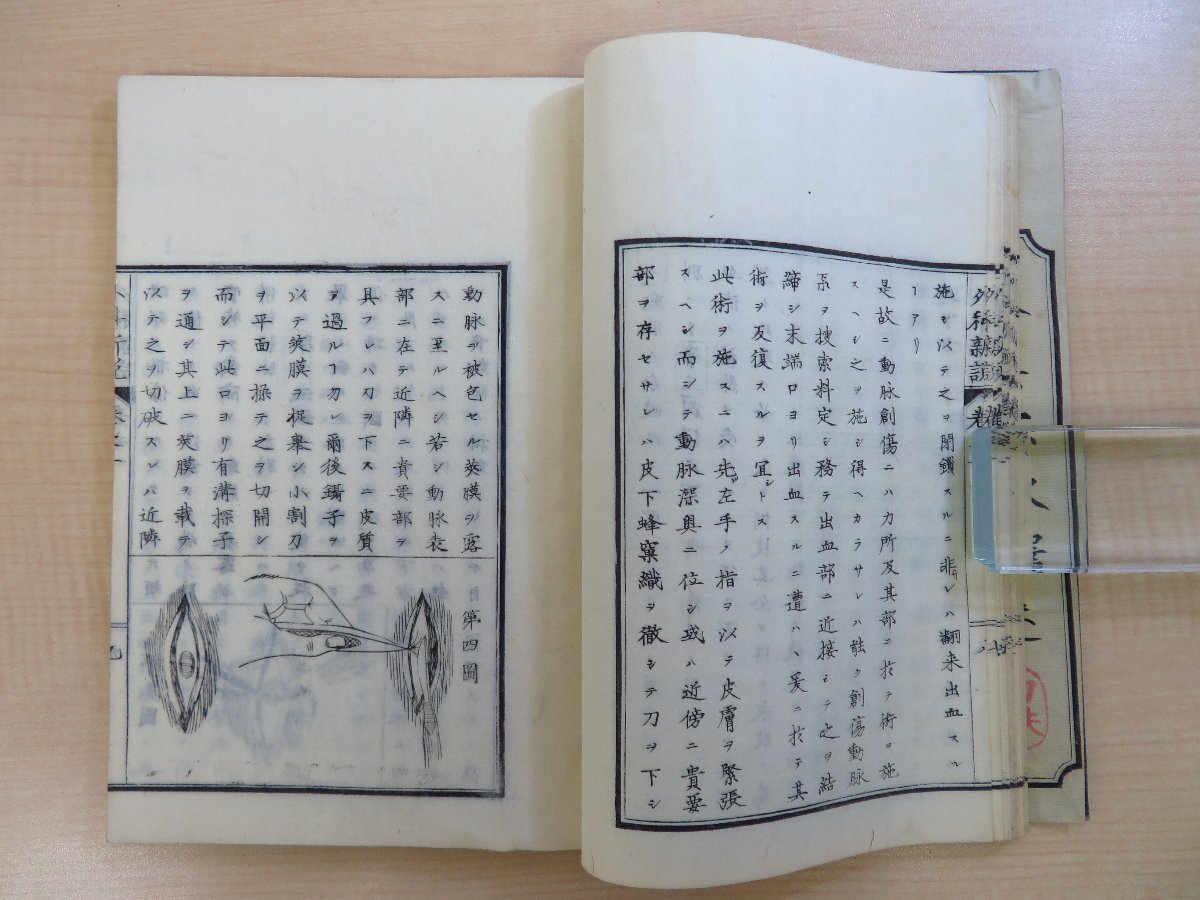 施シ以テ之ヲ閉鎖スルニ非サレハ翻来出血スル
ヿアリ
是故ニ動脉創傷ニハ力所及其部ニ於テ術ヲ施
スヘシ之ヲ施シ得ヘカラサレハ能ク創蕩動脉
系ヲ捜索料定シ務テ出血部ニ近接シテ之ヲ結
締シ末端口ヨリ出血スルニ遭ハヽ爰ニ於テ其
術ヲ反復スルヲ宜シトス
此術ヲ施スニハ先ツ左手ノ指ヲ以テ皮膚ヲ緊張
スヘシ而シテ動脉深奥ニ位シ或ハ近傍ニ貴要
部ヲ存セサレハ皮下蜂窠織ヲ徹シテ刀ヲ下シ
動脉ヲ被包セル莢膜ヲ露
スニ至ルヘシ若シ動脉表
部ニ在テ近隣ニ貴要部ヲ
具フレハ刃ヲ下スニ皮質
ヲ過ルヿ勿レ爾後鑷子ヲ
以テ莢膜ヲ捉挙シ小割刀
ヲ平面ニ操テ之ヲ切開シ
而シテ此口ヨリ有溝探子
ヲ通シ其上ニ莢膜ヲ載テ
以テ之ヲ切破スレハ近隣
第四圖